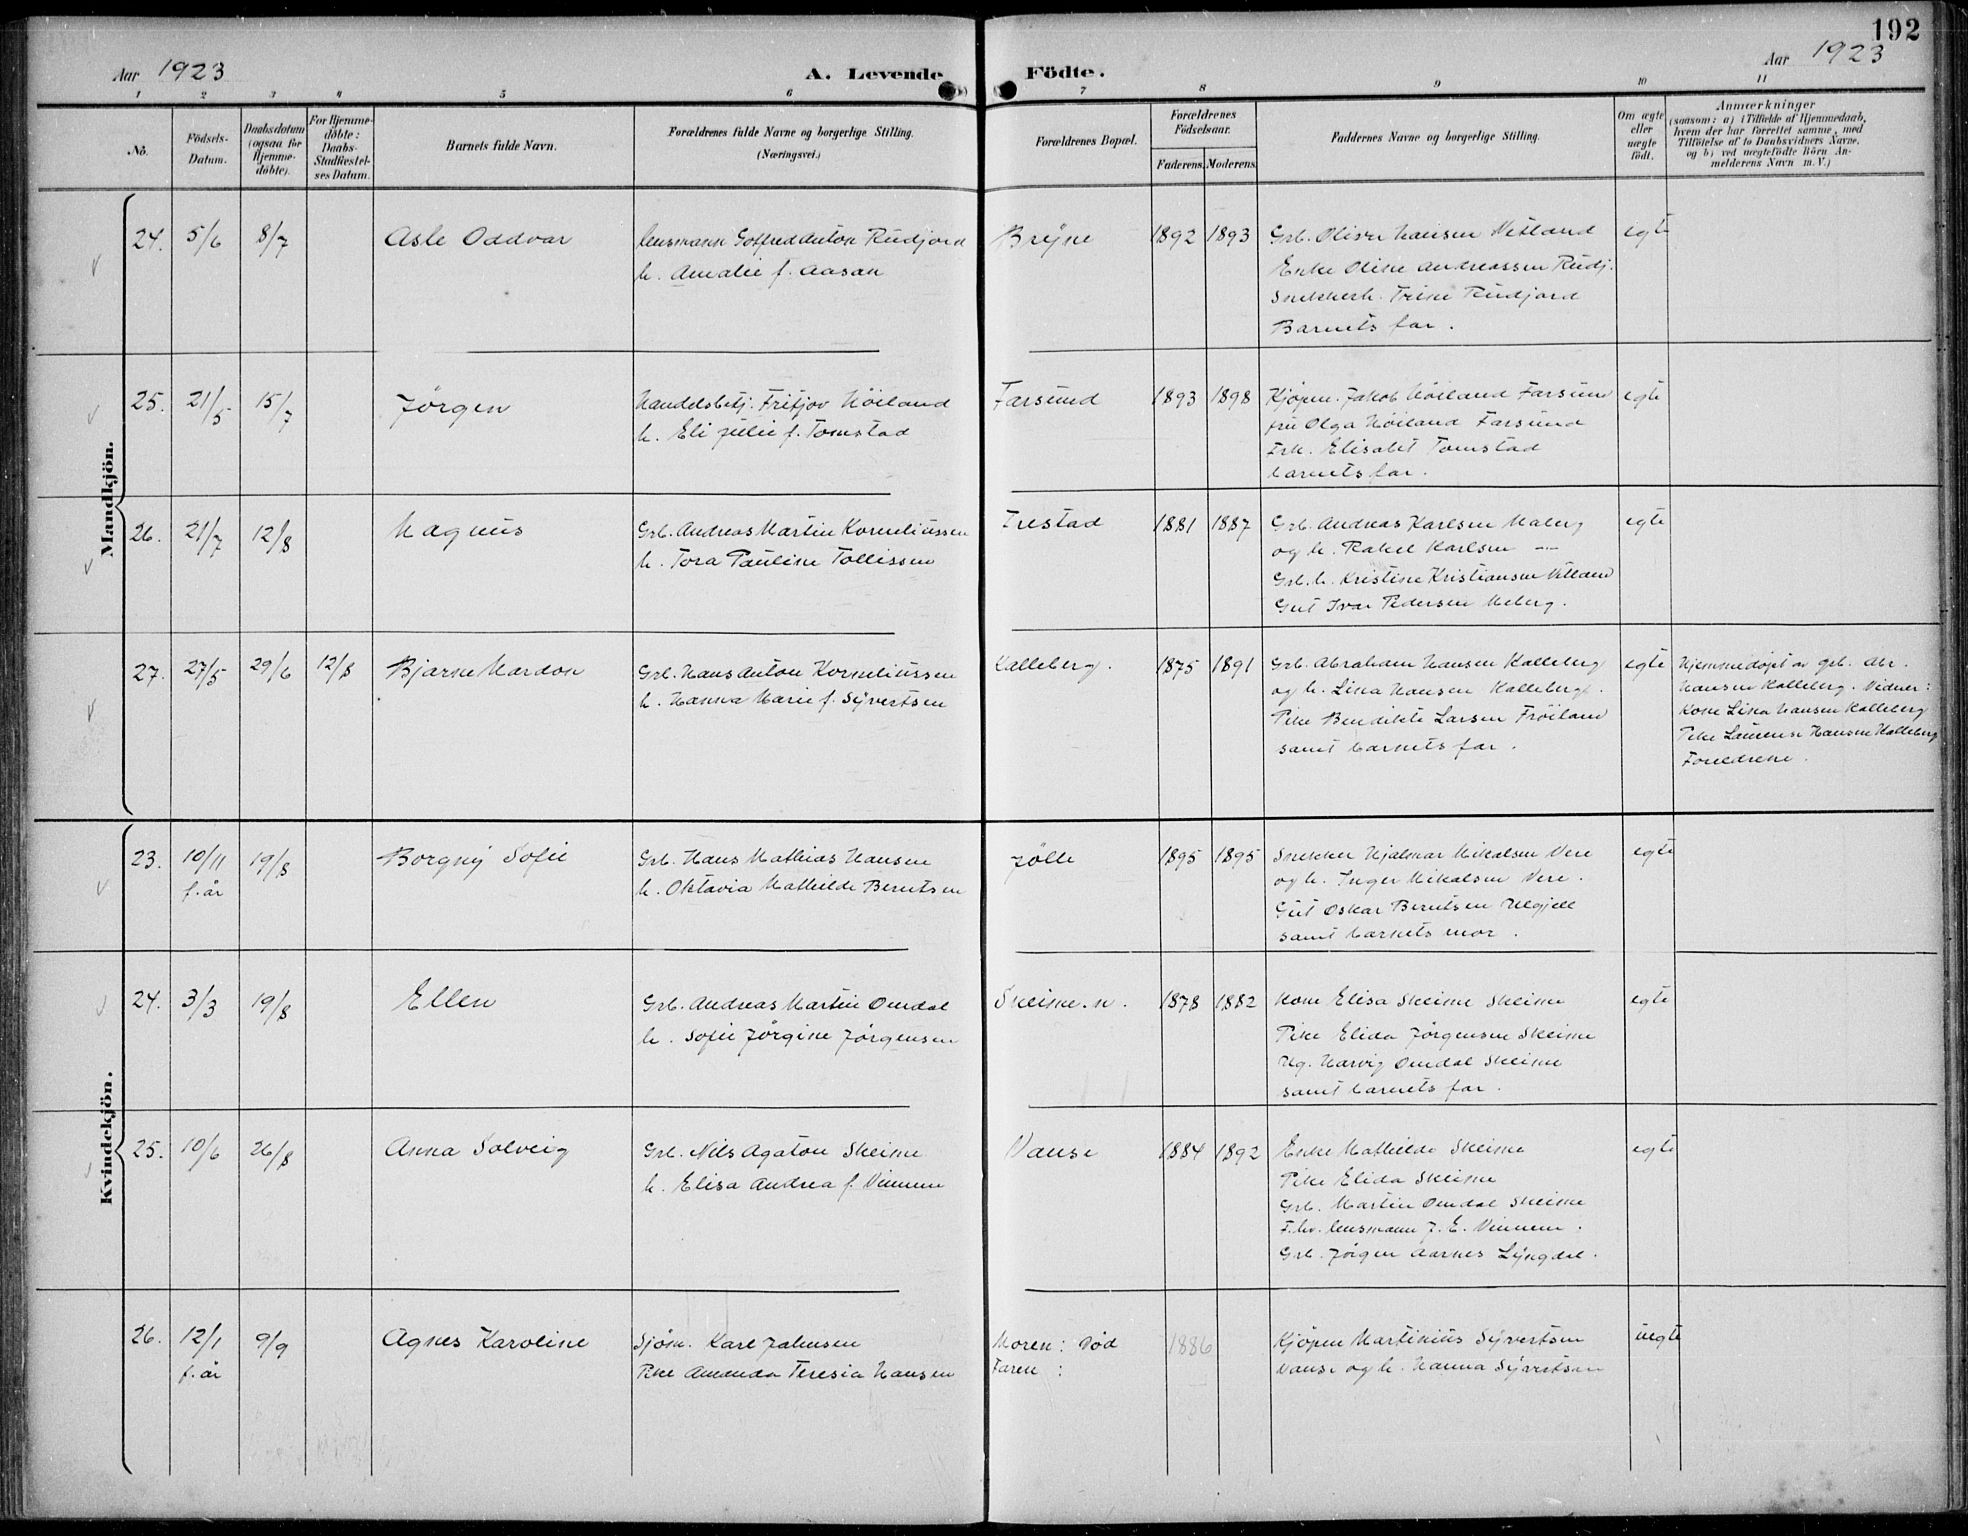 192
Aar 1923
A. Levende
Födte.
Aar 1923
1 2 3 4 5 6 7 8 9 10 11
No.
Födsels-Datum.
Daabsdatum (ogsaa for Hjemme-döbte).
For Hjemme-döbte: Daabs-Stadfæstel-ses Datum.
Barnets fulde Navn.
Forældrenes fulde Navne og borgerlige Stilling.
(Næringsvei.)
Forældrenes Bopæl.
Forældrenes Födselsaar.
Faderens. Moderens.
Faddernes Navne og borgerlige Stilling.
Om ægte eller uægte födt.
Anmærkninger
(saasom: a) i Tilfælde af Hjemmedaab,
hvem der har forrettet samme, med
Tilföielse af to Daabsvidners Navne,
og b) ved uægtefödte Börn An-
melderens Navn m. V.)
Mandkjön.
24. 5/6 8/7 Asle Oddvar lensmann Gotfred Anton Rudjord Bryne 1892 1893 Grb. Oliver Hansen Vetland egte
h. Amalie f. Aasan Enke Oline Andreassen Rudj.
Snekkerh. Trine Rudjord
Barnets far.
25. 21/5 15/7 Jörgen Handelsbetj. Fritjov Höiland Farsund 1893 1898 Kjöpm. Jakob Höiland Farsund egte
h. Eli Julie f. Tomstad fru Olga Höiland Farsund
Frk. Elisabet Tomstad
barnets far.
26. 21/7 12/8 Magnus Grb. Andreas Martin Korneliussen Frestad 1881 1887 Grb. Andreas Karlsen Maberg egte
h. Tora Pauline Tollissen og h. Rakel Karlsen —"—
Grb. h. Kristine Kristiansen Vetland
Gut Ivar Pedersen Meberg.
27. 27/5 29/6 12/8 Bjarne Mardon Grb. Hans Anton Korneliussen Kalleberg. 1875 1891 Grb. Abraham Hansen Kalleberg egte Hjemmedøpt av grb. Abr.
h. Hanna Marie f. Syvertsen og h. Lina Hansen Kalleberg. Hansen Kalleberg. Vidner:
Pike Bendikte Larsen Fröiland Kone Lina Hansen Kalleberg
samt barnets far. Pike Laurense Hansen Kalleberg
Foreldrene.
Kvindekjön.
23. 10/11 19/8 Borgny Sofie Grb. Hans Mathias Hansen Jölle 1895 1895 Snekker Hjalmar Mikalsen Vere egte
f. år h. Oktavia Mathilde Berntsen og h. Inger Mikalsen Vere.
Gut Oskar Berntsen Ulgjell
samt barnets mor.
24. 3/3 19/8 Ellen Grb. Andreas Martin Omdal Skeime. n. 1878 1882 Kone Elisa Skeime Skeime egte
h. Sofie Jörgine Jörgensen Pike Elida Jörgensen Skeime
Ug. Harvig Omdal Skeime
samt barnets far.
25. 10/6 26/8 Anna Solveig Grb. Nils Agaton Skeime Vanse 1884 1892 Enke Mathilde Skeime egte
h. Elisa Andrea f. Vinnem Pike Elida Skeime
Grb. Martin Omdal Skeime
F.hv. lensmann J. E. Vinnem.
Grb. Jörgen Aarnes Lyngdal.
26. 12/1 9/9 Agnes Karoline Sjöm. Karl Johnsen Moren: Död 1886 Kjöpm Martinius Syvertsen uegte
f. år Pike Amanda Teresia Hansen Faren: Vanse og h. Hanna Syvertsen